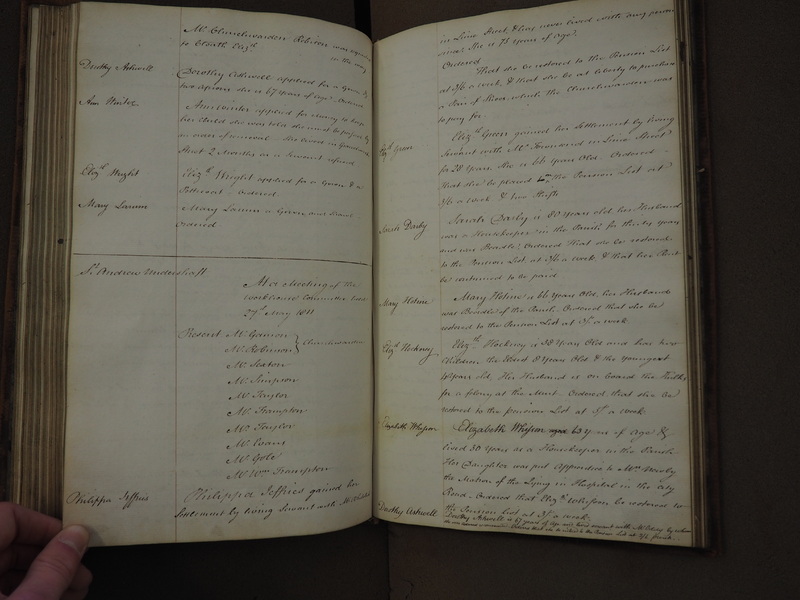 Mr Churchwarden Robinson was
to Eliz.d
Dorothy Ashwell
Dorothy Ashwell applied for a Gown &
two aprons she is 67 years of age Ordered
Ann Winter
Ann Winter applied for money to
her child she was told she must be passed by
an order of removal
Street 2 Months as a Servant refused
Eliz.th Wright
Eliz.th Wright applied for a Gown & a
Petticoat Ordered
Mary Larwin
Mary Larwin a Gown and
Ordered
St Andrew Undershaft
At a Meeting of the
workhouse Committee
27th May 1811
Present Mr Gannon
Mr Robinson } Churchwardens
Mr Sexton
Mr Simpson
Mr Taylor
Mr Frampton
Mr Taylor
Mr Evans
Mr Gole
Mr Wm Frampton
Philippa Jeffries
Philippa Jeffries gained her
Settlement by living Servant with
in Lime Street & has never lived with any person
since She is 75 years of age
Ordered
That she be restored to the Pension List
at 3/6 a week, & that she be at liberty to purchase
a Pair of Shoes which the Churchwarden was
to pay for
Eliz.th Green
Eliz.th Green gained her Settlement by living
Servant with Mr Townsend in Lime Street
for 20 Years, She is 66 Years Old. Ordered
that she be placed on the Pension List at
3/6 a week & two Shifts
Sarah Darby
Sarah Darby is 80 years old her Husband
was a Housekeeper in the Parish for thirty years
and was Beadle. Ordered that she be restored
to the Pension List at 3/6 a week, & that her Rent
be continued to be paid
Mary Holme
Mary Holme is 66 Years Old, her Husband
was Beadle of the Parish. Ordered that she be
restored to the Pension List at 3/ a week
Eliz.th Hockney
Eliz.th Hockney is 38 Years Old and has two
Children the Eldest 8 Years Old & the youngest
4 Years old, Her Husband is on board the Hulks
for a felony at the Mint. Ordered that she be
restored to the pension List at 3/ a week
Elizabeth Whison
Elizabeth Whison aged 63 years of Age &
lived 30 Years as a Housekeeper in the Parish
Her Daughter was put Apprentice to Mrs
the Matron of the Lying in Hospital in the City
Road. Ordered that Eliz.th Whison be restored to
the Pension List at 3/ a week
Dorothy Ashwell
Dorothy Ashwell is 67 years of age and lived servant with
Ordered that she be restored to the Pension List at 3/6